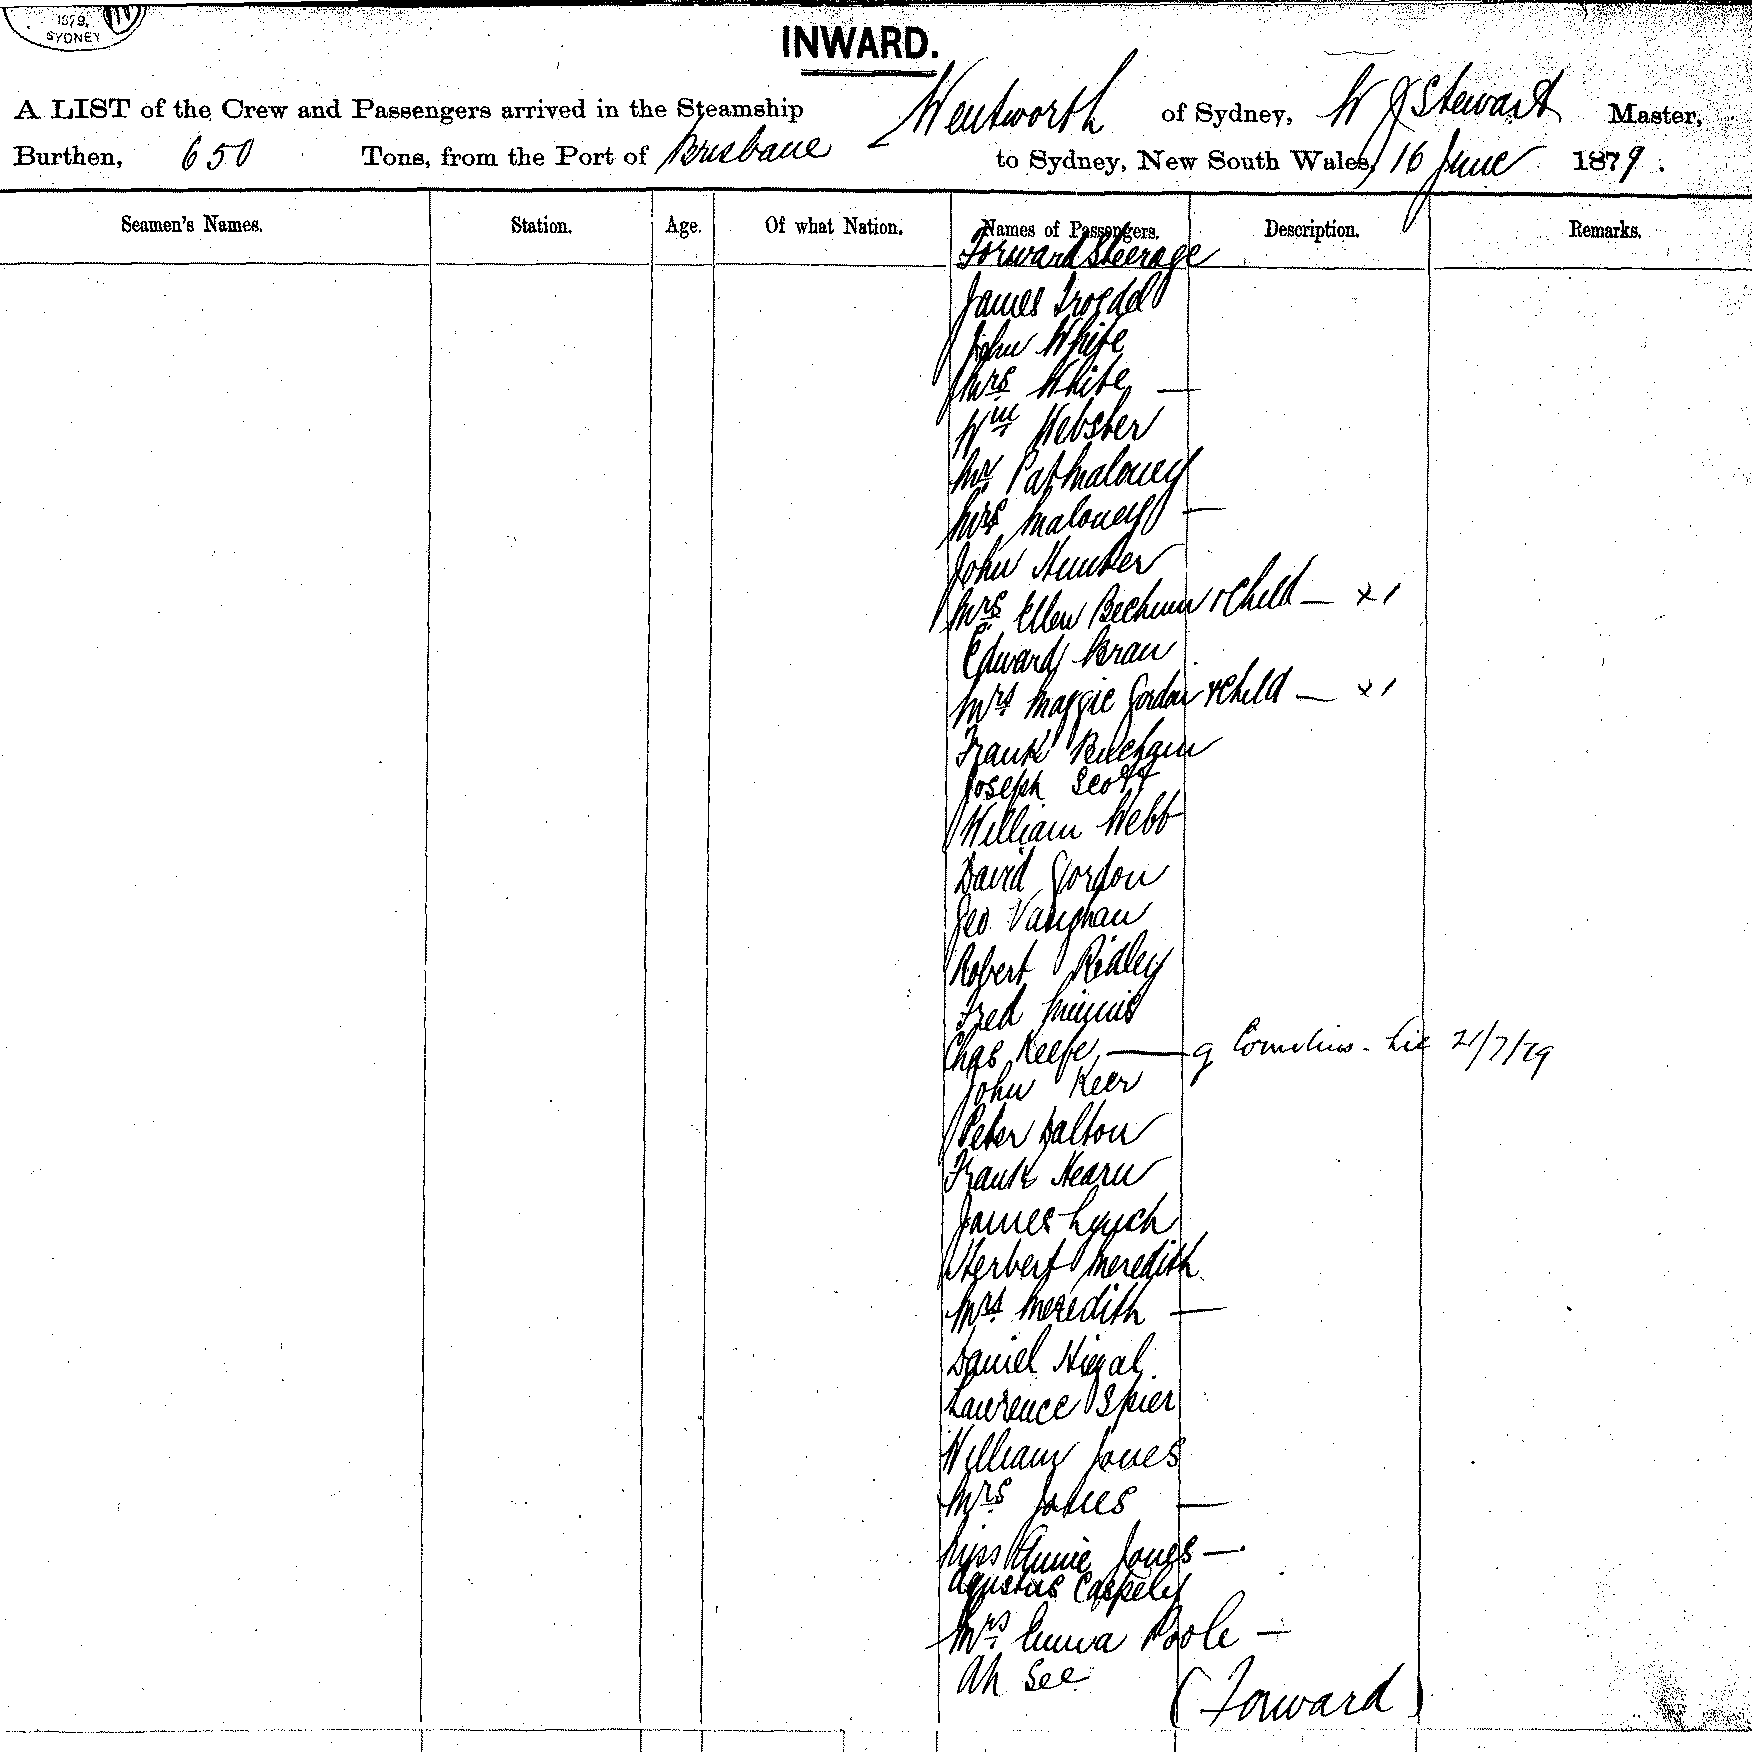 1879.
SYDNEY
INWARD.
A LIST of the Crew and Passengers arrived in the Steamship Wentworth of Sydney, W J Stewart Master,
Burthen, 650 Tons, from the Port of Brisbane to Sydney, New South Wales, 16 June 1879.
Seamen's Names. Station. Age. Of what Nation. Names of Passengers. Description. Remarks.
Forward Steerage
James
John White
Mrs White —
Wm Webster
Mr Pat Maloney
Mrs Maloney —
John Hunter
Mrs Ellen & Child — x 1
Edward
Mrs Maggie Gordon & Child — x 1
Frank
Joseph Scott
William Webb
David Gordon
Geo Vaughan
Robert Ridley
Fred
Chas Keefe — Cornelius 21/7/79
John Keer
Peter Dalton
Frank Hearn
James Lynch
Herbert Meredith
Mrs Meredith —
Daniel
Lawrence Spier
William Jones
Mrs Jones —
Miss Annie Jones —
Mrs Emma Poole —
Ah See
(Forward)